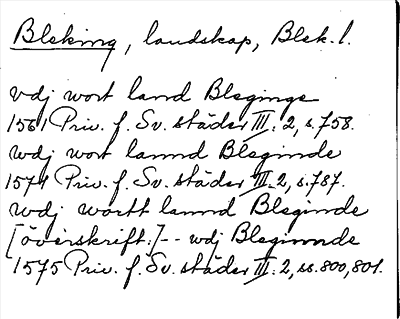 Bleking, landskap, Blek. l.
vdj wort land Bleginge
1561 Priv. f. Sv. städer III: 2, s. 758.
wdj wort lannd Bleginde
1571 Priv. f. Sv. städer III: 2, s. 787.
wdj wortt lannd Bleginde
[överskrift:] -- wdj Bleginnde
1575 Priv. f. Sv. städer III: 2, ss. 800, 801.